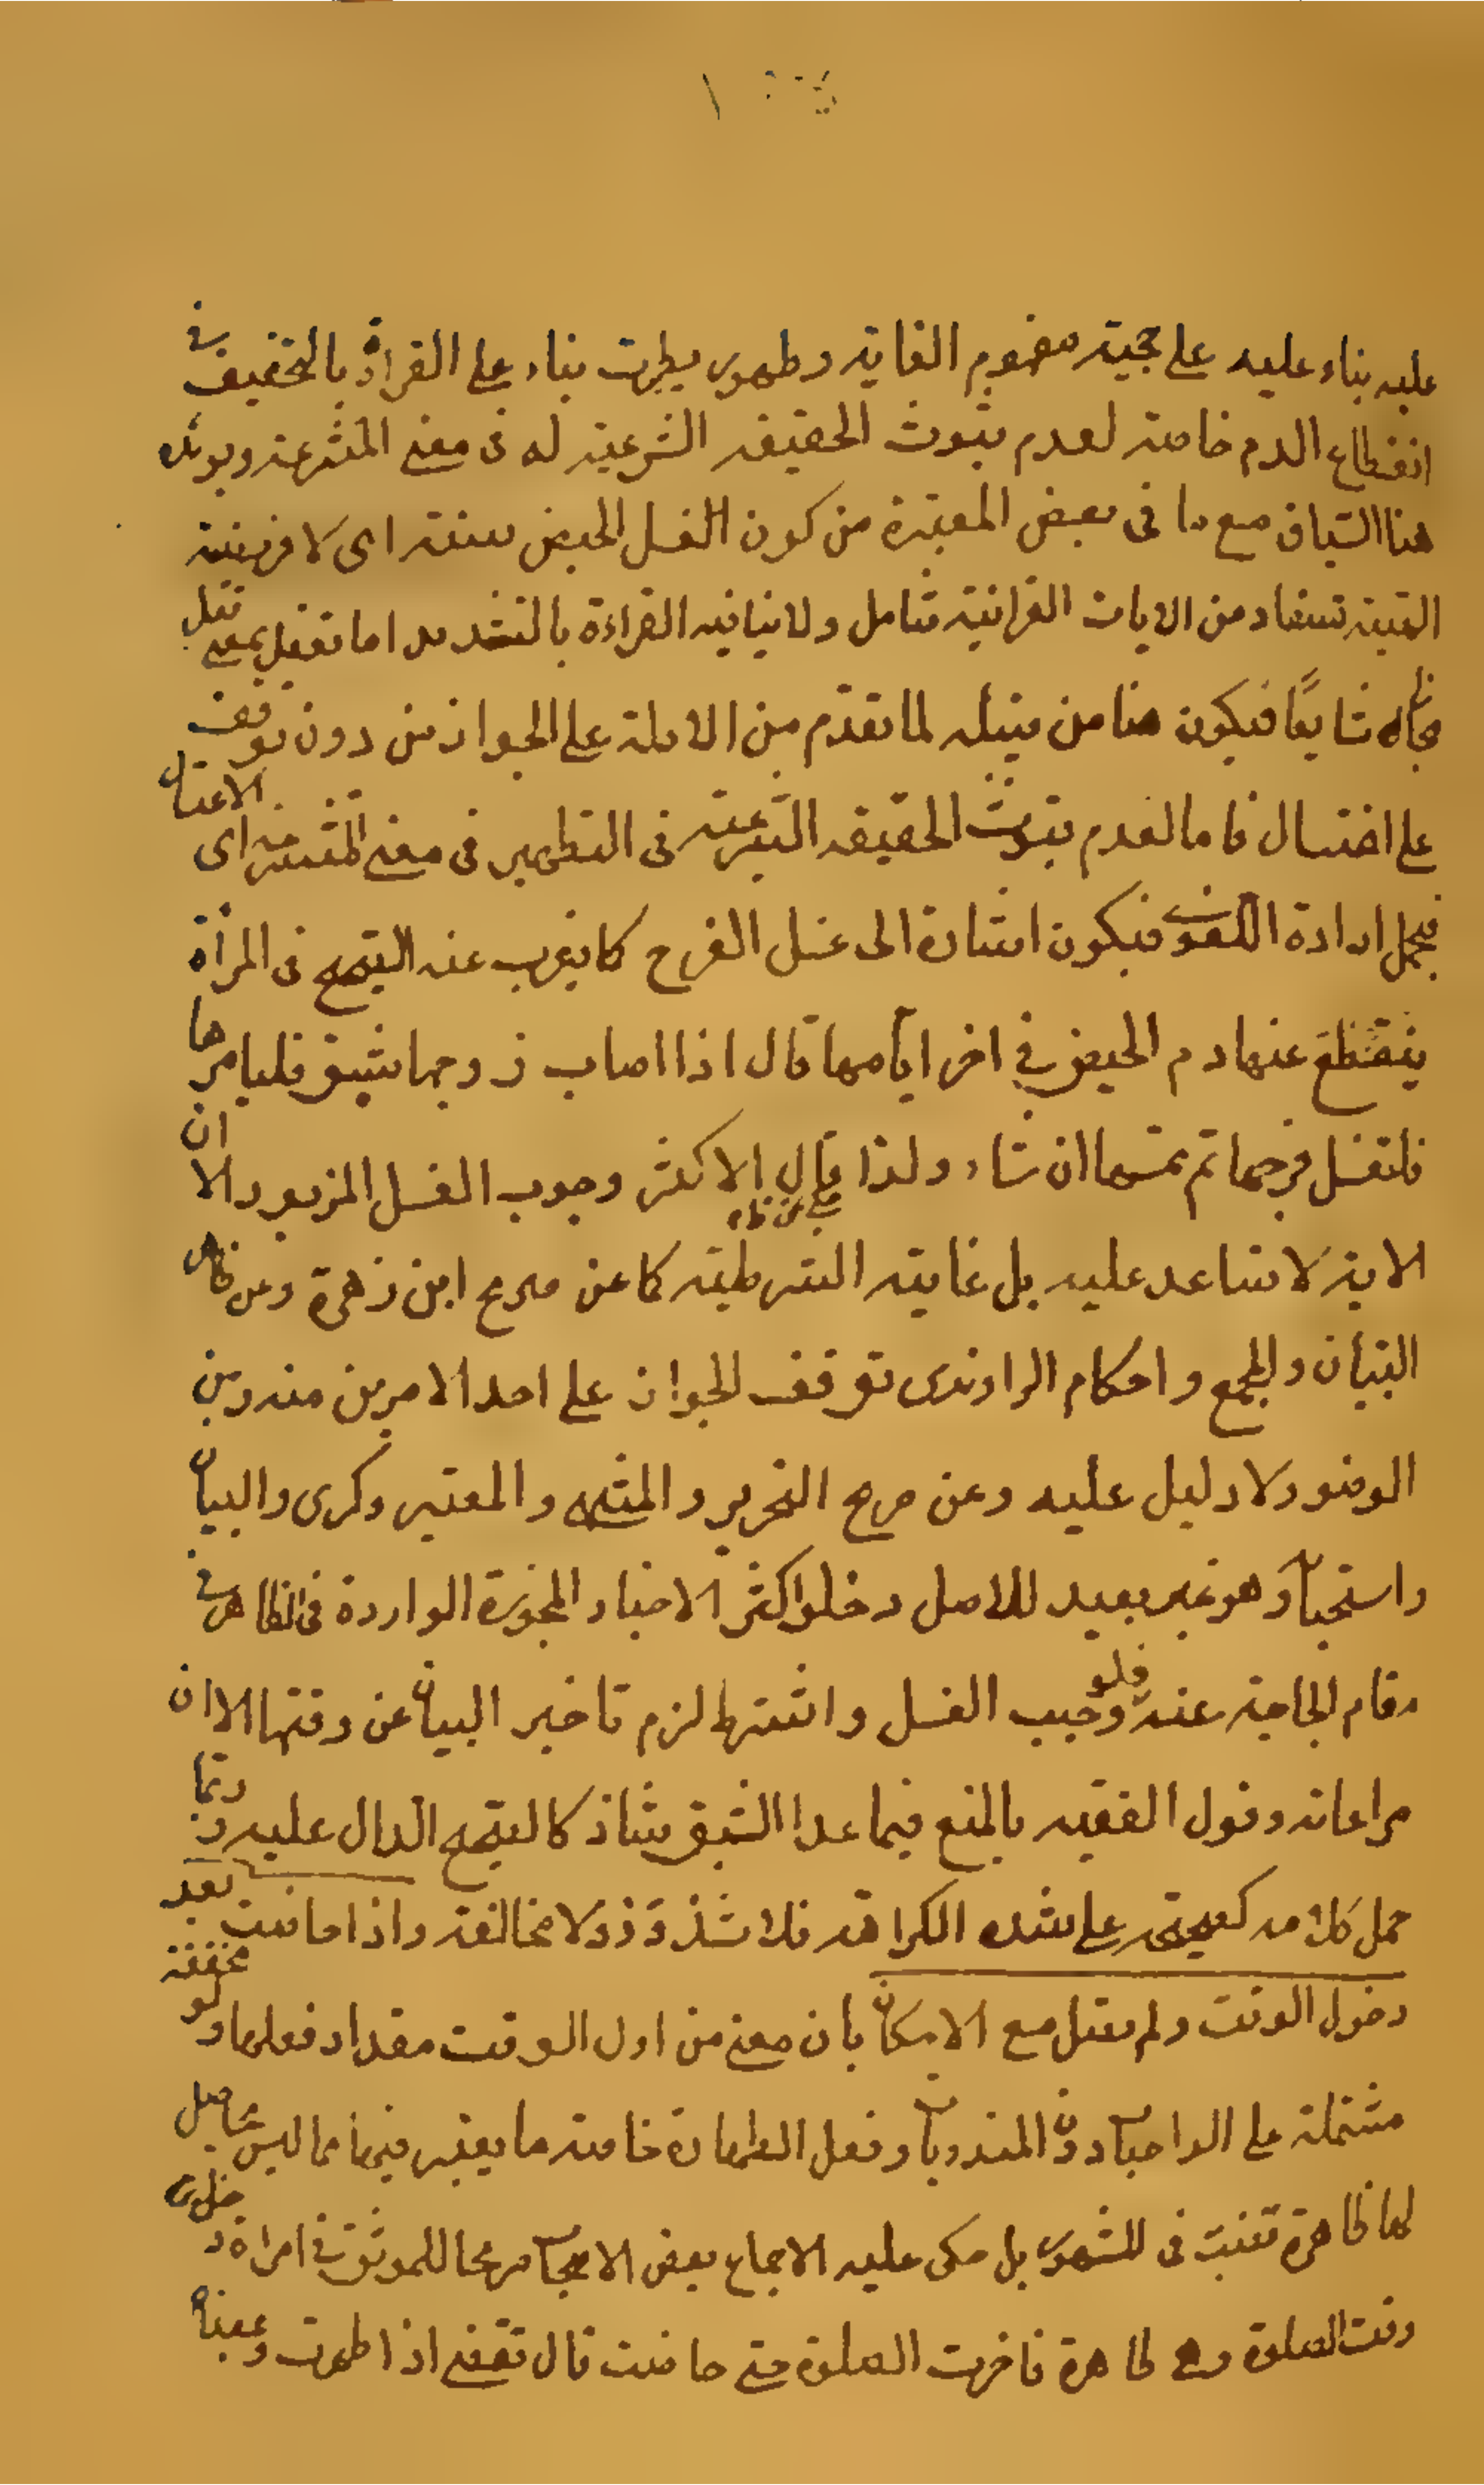 عليه بناء عليه على حجية مفهوم الغاية وظهور يطهرن بناء على القراءة بالتخفيف في
انقطاع الدم خاصة لعدم ثبوت الحقيقه الشرعية له في معنى المتشرعة ويؤيده
هنا السياق مع ما في بعض المعتبرة من كون الغسل الحيض سنة اى لا فريضة
التى تستفاد من الايات القرانية فتامل ولا ينافيه القراءة بالتشديد اما تفعل بمعنى فعل
جاء شايعًا فيكون هنا من قبيله لما تقدم من الادلة على الجواز من دون توقف
على اغتسال فاما لعدم ثبوت الحقيقه الشرعية في التطهير في معنى المتشرعة اى الاغتسال
فيحمل ارادة اللغوي فيكون اشارة الى غسل الفرج كما يعرب عنه الصحيح في المرأة
ينقطع عنها دم الحيض في اخر ايامها قال اذا اصاب زوجها شبق فليامرها
فلتغسل فرجها ثم يمسها ان شاء ولذا قال الاكثر وجوب الغسل المزبور الا ان
الاية لا تساعد عليه بل غايته الشرطية كما عن صريح ابن زهرة وعن ظاهر
التبيان والمجمع واحكام الراوندى توقف الجواز على احد الامرين منه وبين
الوضوء ولا دليل عليه وعن صريح التحرير والمنتهى والمعتبر وكرى والبيان
واستحبابه وهو غير بعيد للاصل وخلو اكثر الاخبار المجوزة الواردة في الظاهر في
مقام الحاجة عنه فلو وجب الغسل واشترط لزم تاخير البيان عن وقتها الا ان
مراعاته وقول الفقيه بالمنع فيما عدا الشبق شاذ كالصحيح الدال عليه وربما
حمل كلامه كالصحيح على شدة الكراهة فلا شذوذ ولا مخالفة واذا حاضت بعد
دخول الوقت ولم تصل مع الامكان بان مضى من اول الوقت مقدار فعلها ولو مخففة
مشتملة على الواجبات دون المندوبات وفعل الطهارة خاصة مما يعتبر فيها مما ليس بحاصل
لها طاهرة قضت في المشهور بل حكى عليه الاجماع بعض الاصحاب صريحا للموثق في امراة دخل
وقت الصلوة وهي طاهرة فاخرت الصلوة حتى حاضت قال تقضى اذا طهرت وبمعناه